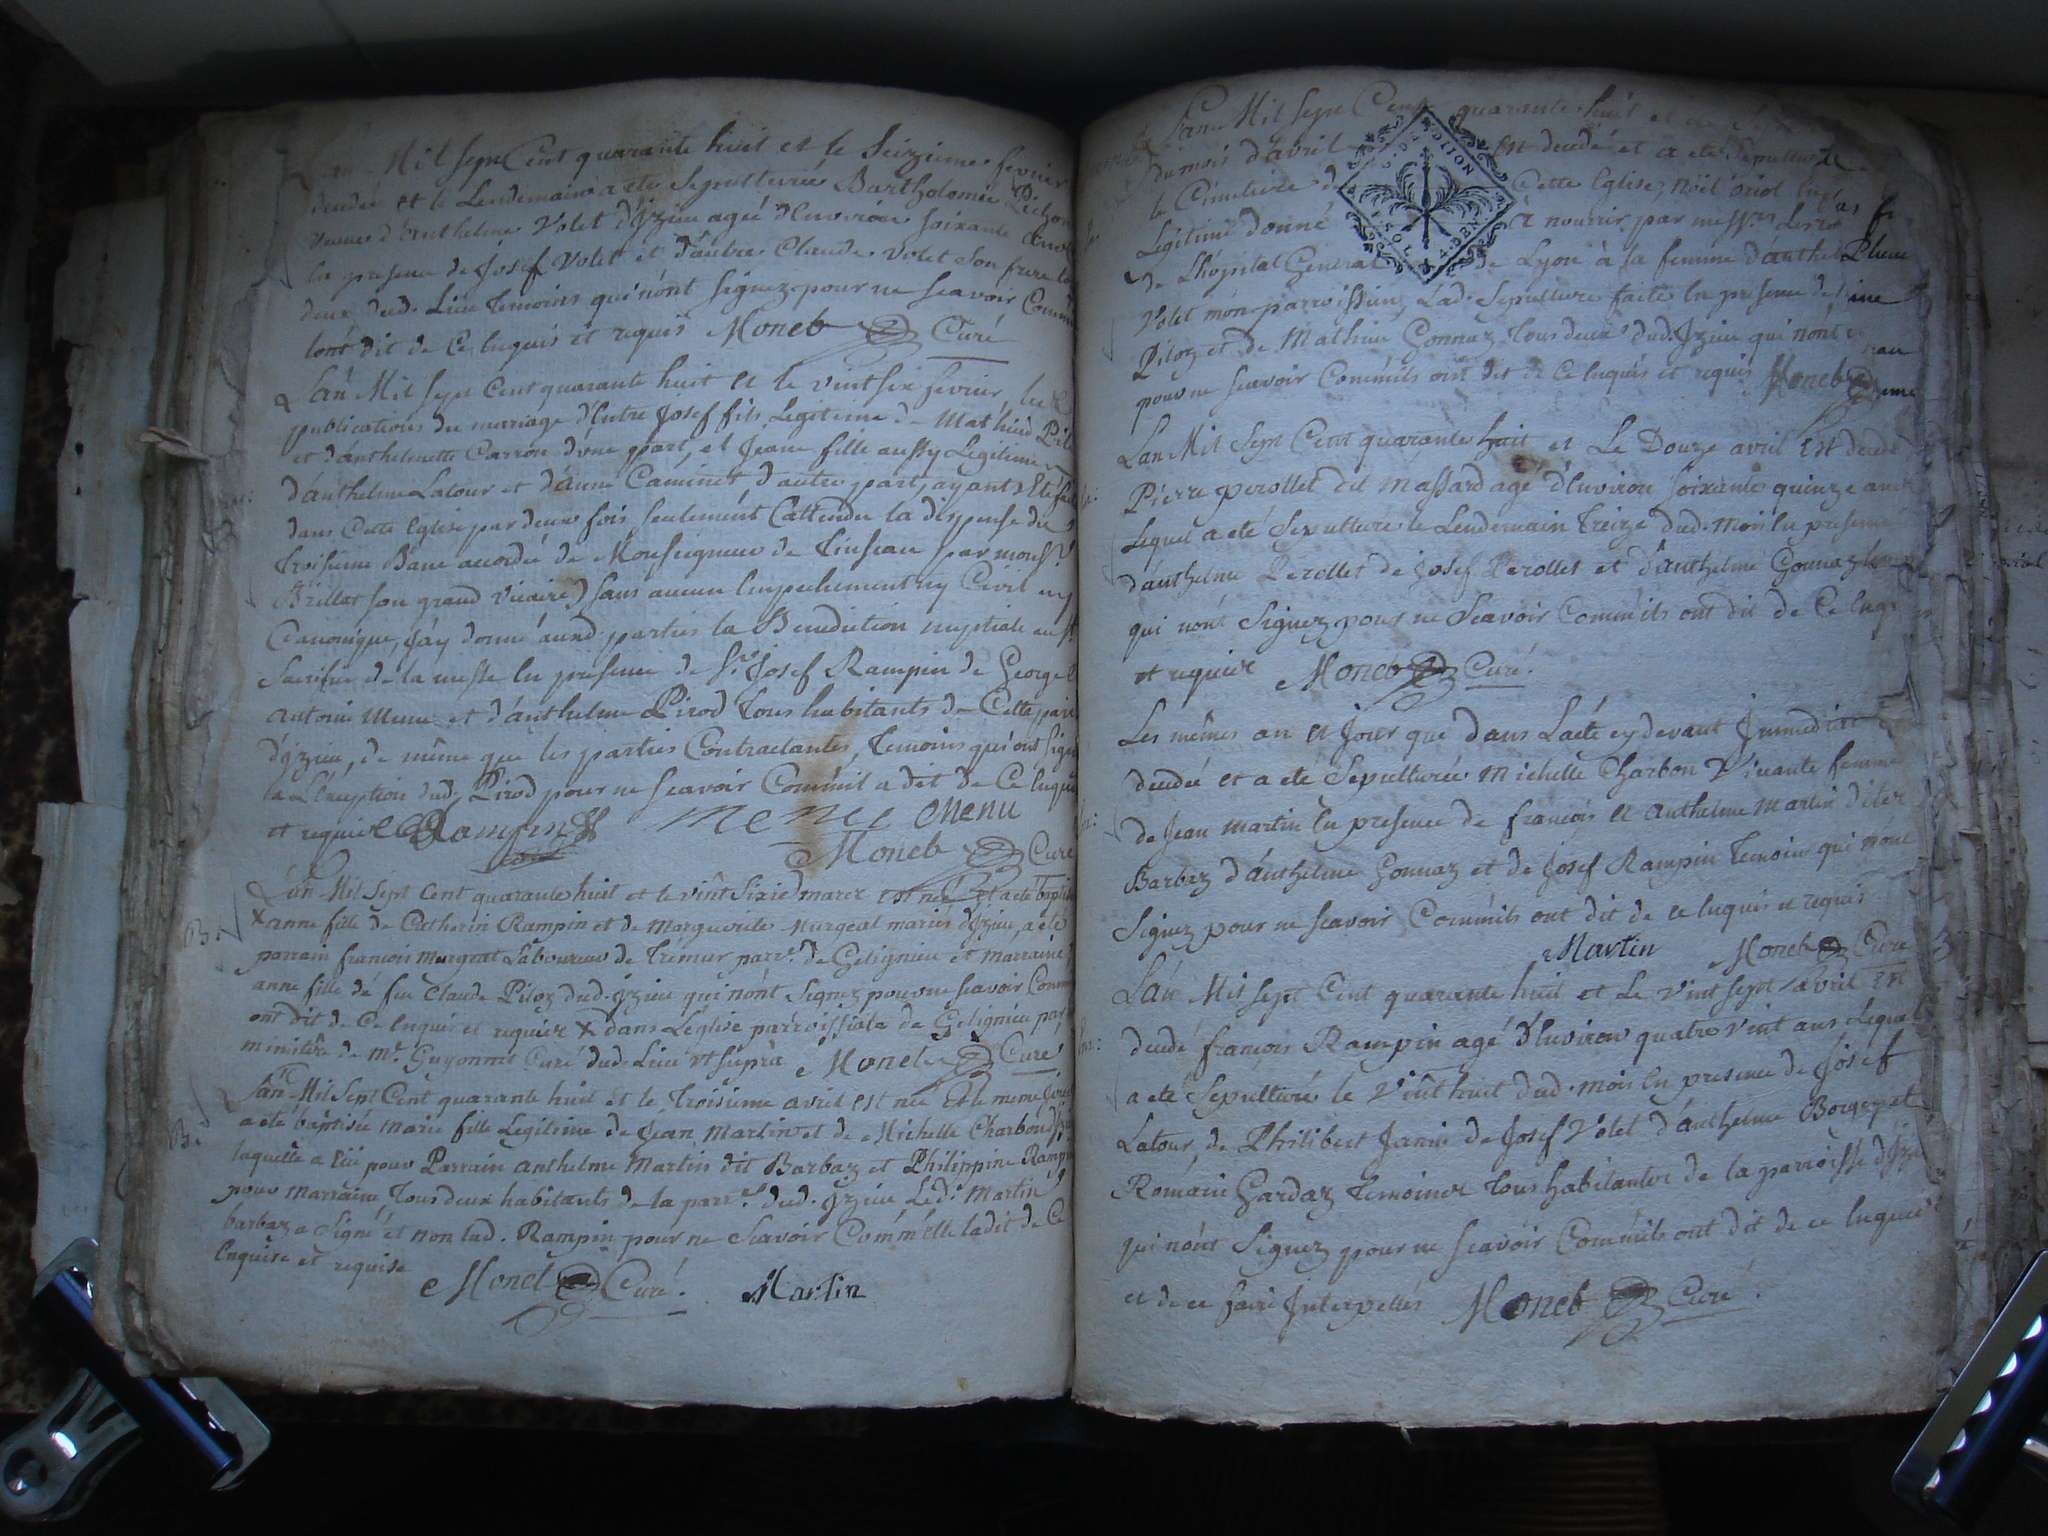 Lan Mil Sept Cent quarante huit et le Seizieme fevrier
decedée et le Lendemain a ete Sepulturée Bartholomie
veuve d'Anthelme Volet d'Izieu ageé d'Environ soixante
la presence de Josef Volet et d'autre Claude Volet son frere
deux dud. Lieu Temoins qui n'ont signez pour ne scavoir
lont dit de ce enquis et requis Moneb Curé
Lan Mil Sept Cent quarante huit et le vint six fevrier, les
publications du mariage d'Entre Josef fils Legitime de Mathieu
et d'anthelmette Carron d'une part, et Jeane fille aussy Legitime
d'anthelme Latour et d'anne Caminet d'autre part, ayant Eté
dans cette Eglise par deux fois seulement (attendu la dispense du
Troisieme Banc accordée de Monseigneur de Tinseau par mons.r
Brillat son grand vicaire) sans aucun Empechement ny Civil ny
Canonique, J'ay donné auxd. parties la Benediction nuptiale au st
Sacrifice de la messe En presence de Sr Josef Rampin de George
antoine Menu et d'anthelme Pirod Tous habitants de Cette
d'Izieu, de même que les parties Contractantes, Temoins qui ont
a L'Exception dud. Pirod pour ne scavoir Comm'il a dit de Ce
et requis Rampin Menu
Moneb Curé
Lan Mil Sept Cent quarante huit et le vint Sixie marez est née et a eté
x anne fille de Catherin Rampin et de Marguerite Murgeat mariés d'Izieu, a eté
parrain françois Murgeat Laboureur de Trémur parr.e de Gelignieu et marraine
anne fille de feu Claude Piloz dud. Izieu qui n'ont Signez pour ne scavoir
ont dit de Ce Enquis et requier x dans L'Eglise parroissiale de Gelignieu par
ministère de mr. Guyonnet Curé dud. Lieu ut supra Moneb Curé
Lan Mil Sept Cent quarante huit et le Troisieme avril est née Et le meme
a eté baptisée marie fille Legitime de Jean Martin et de Michelle Charbon
laquelle a Eü pour Parrain anthelme Martin dit Barbaz et Philippine
pour marraine, Tous deux habitants de la parr.e dud. Izieu Led. Martin
barbaz a Signé et non lad. Rampin pour ne scavoir Comm'elle la dit de Ce
Enquise et requise
Moneb Curé. Martin
Lan Mil Sept Cent quarante huit et
du mois d'avril Est decedé et a eté
le Cimetiere de Cette Eglise, noël oriol
Legitime donné à nourrir par mess.rs Les
de L'hôpital General de Lyon à la femme
Volet mon parroissien, Lad. Sepulture faite En presence de
Piloz et de Mathieu Gonnaz Tous deux dud. Izieu qui n'ont
pour ne scavoir Comm'ils ont dit de Ce Enquis et requis Moneb
Lan Mil Sept Cent quarante huit et Le Douze avril Est decedé
Pierre perollet dit Massard agé d'Environ Soixante quinze ans
Lequel a eté Sepulturé le Lendemain Treize dud. mois En presence
d'anthelme Perollet de Josef Perollet et d'anthelme Gonnaz
qui n'ont Signez pour ne scavoir Comm'ils ont dit de Ce
et requier Moneb Curé.
Les mêmes an et Jour que dans L'acte cy devant
decedée et a eté Sepulturée Michelle Charbon Vivante femme
de Jean Martin En presence de françois et anthelme Martin dites
Barbaz d'anthelme Gonnaz et de Josef Rampin Temoins qui n'ont
Signez pour ne scavoir Comm'ils ont dit de ce Enquis et requis
Martin Moneb Curé
Lan Mil Sept Cent quarante huit et Le Vint Sept avril Est
decedé françois Rampin agé d'Environ quatre vint ans Lequel
a eté Sepulturé le Vint huit dud. mois En presence de Josef
Latour, de Philibert Janin de Josef Volet d'anthelme
Romain Gardaz Temoins Tous habitants de la parroisse
qui n'ont Signez pour ne scavoir Comm'ils ont dit de ce
et de ce faire Interpellés Moneb Curé.